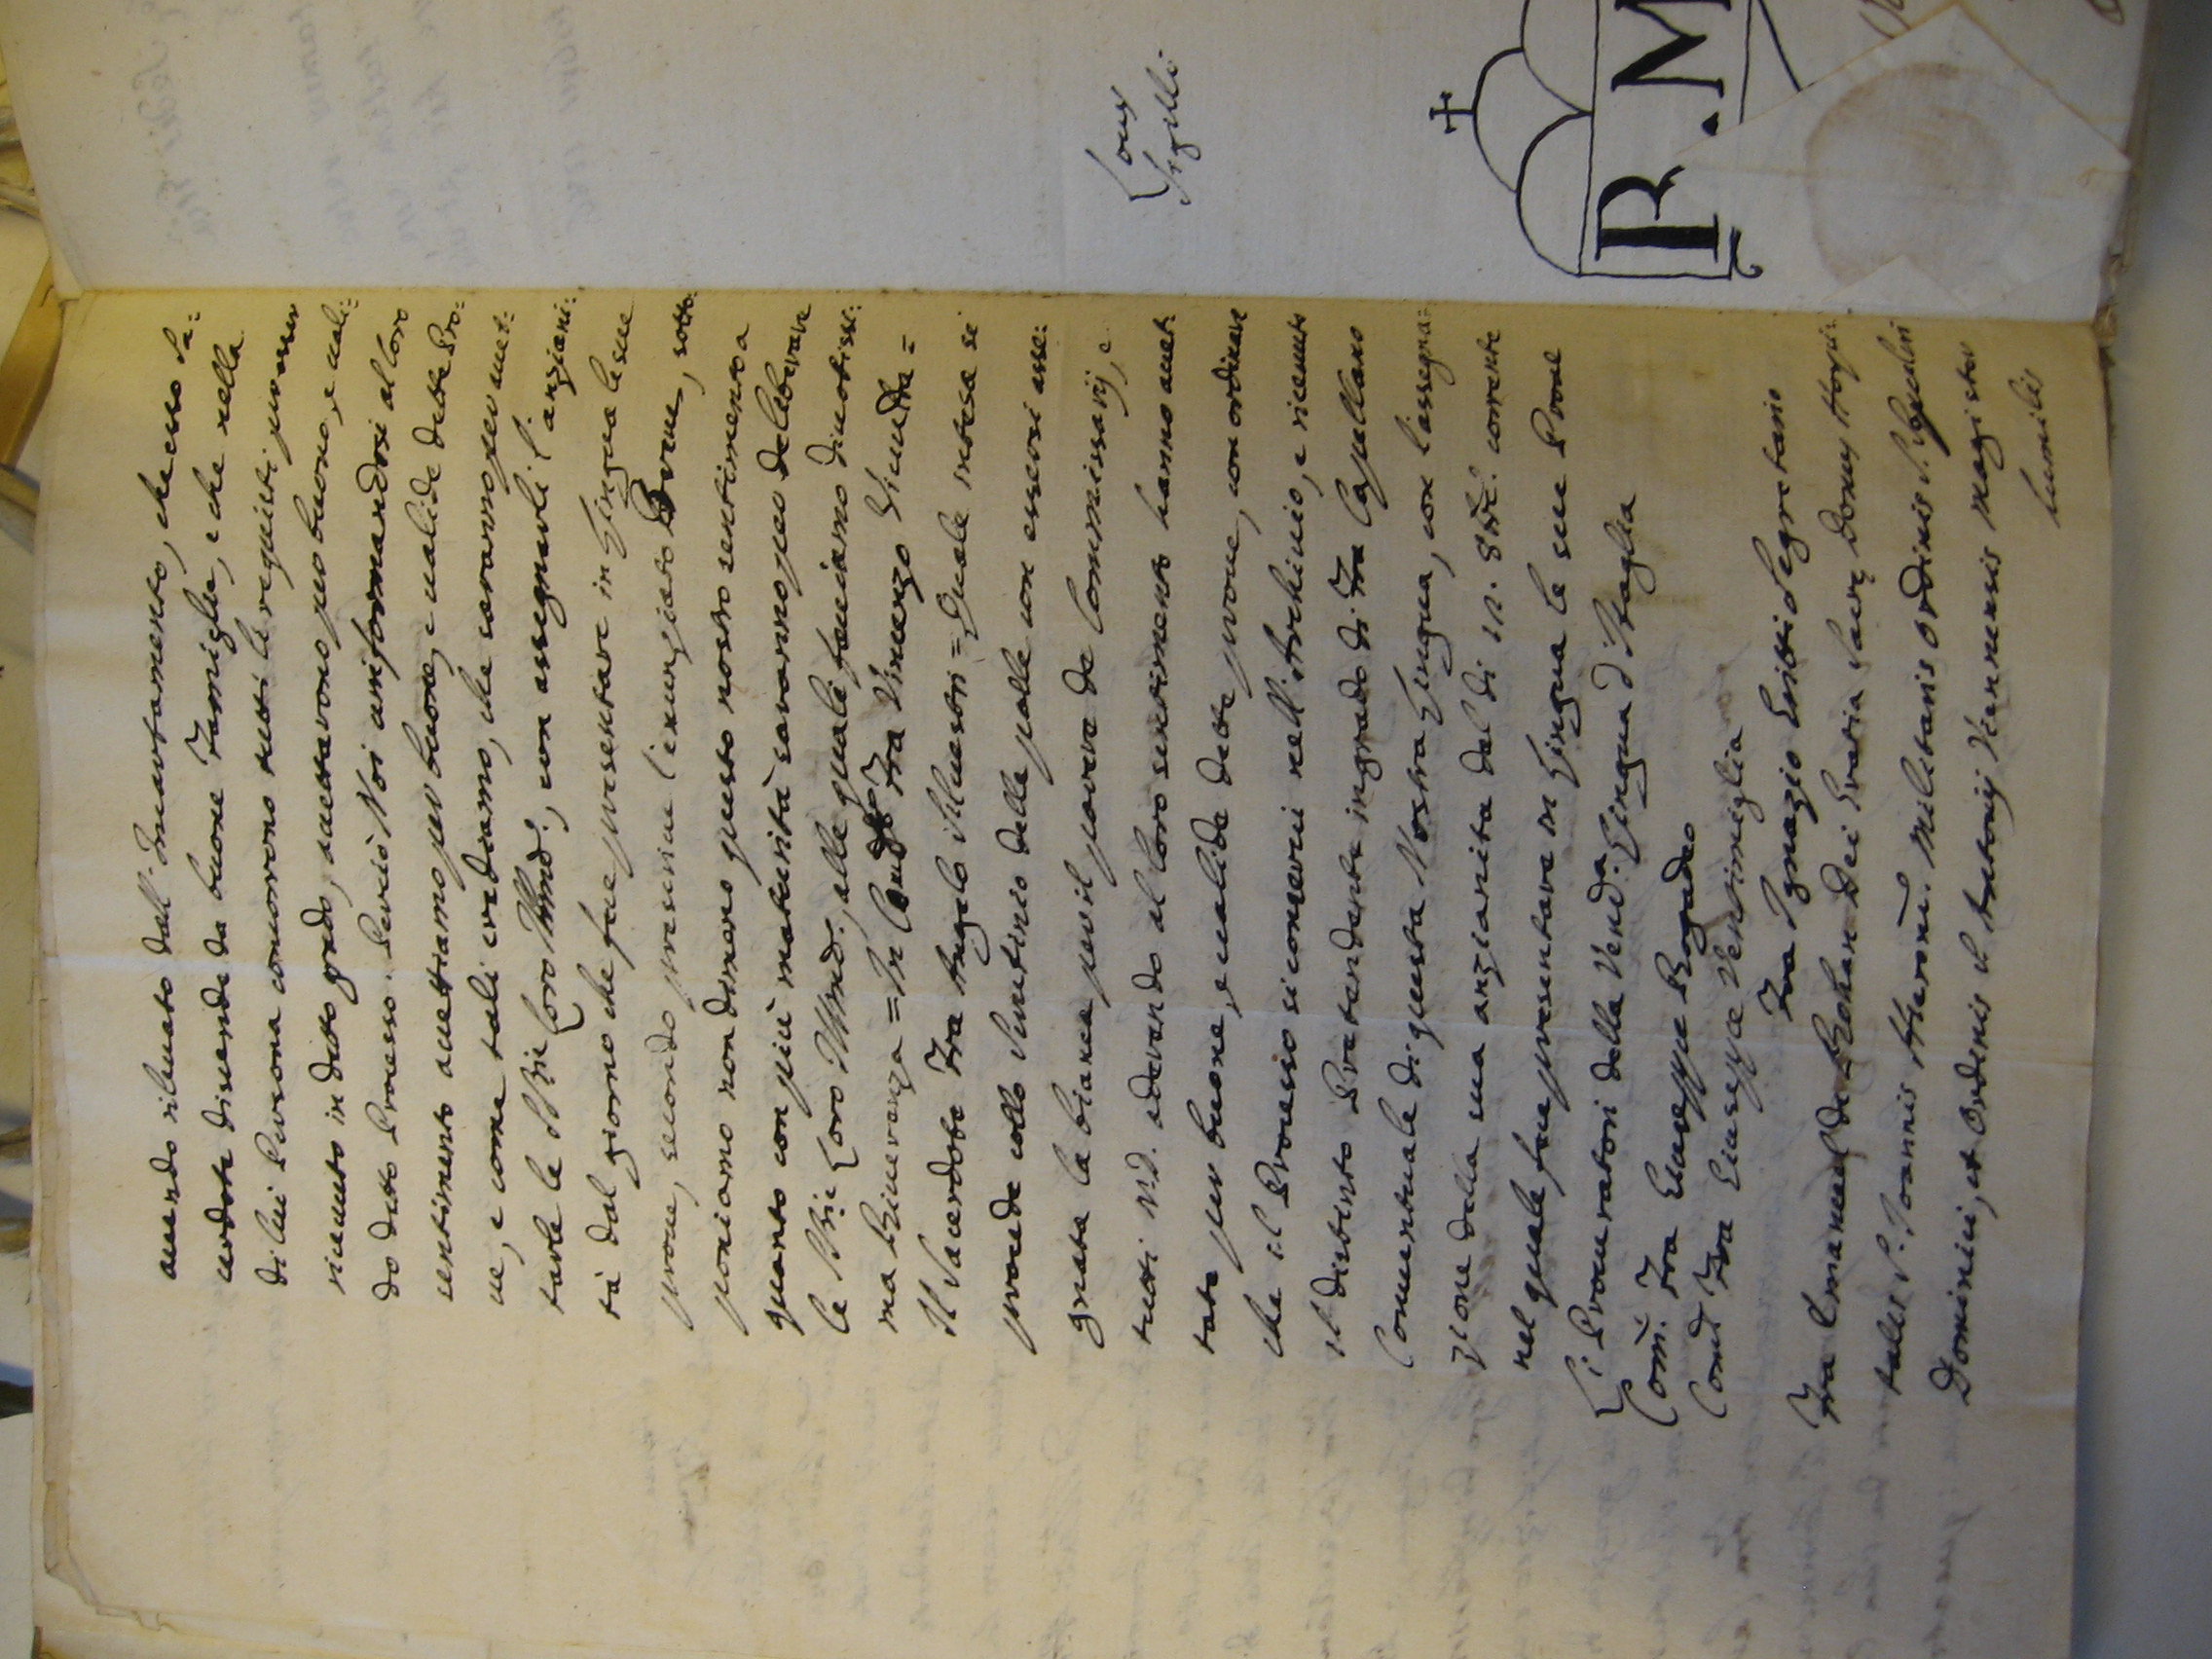 avendo rilevato dall'Incartamento, che esso Sa=
cerdote discende da buone Famiglie, e che nella
di lui Persona concorrono tutti li requisiti per esser
ricevuto in detto grado, accettarono per buono, e vali=
do detto Processo. Perciò Noi uniformandosi al loro
sentimento accettiamo per buone, e valide dette Pro=
ve, e come tali crediamo, che saranno per accet=
tarle le SSrie Loro Illmẽ, con assegnarli l'anziani=
tà dal giorno che fece presentare in Lingua le sue
prove, secondo prescrive l'enunziato Breve, sotto=
poniamo nondimeno questo nostro sentimento a
quanto con più maturità saranno per deliberare
le SSrie Loro Illmẽ, alle quali facciamo divotisse=
ma Riverenza = Fra Vincenzo
Il Sacerdote Fra Angelo Silvestri = Quale intesa si
procede collo Scrutinio delle palle con essersi asse=
gnata la bianca per il parere de Commissarij, e
tutti N.D. aderendo al loro sentimento hanno accet=
tato per buone, e valide dette prove, con ordinare
che il Processo si conservi nell'Archivio, e ricevuto
il distinto Pretendente in grado di Fra Capellano
Conventuale di questa Nostra Lingua, con l'assegna=
zione della sua anzianità dal dì 12. 8bre. corrente
nel quale fece presentare in Lingua le sue Prove
Li Procuratori della Venda. Lingua d'Italia
Com̃. Fra Giuseppe Rogadeo
Comr Fra Giuseppe Ventimiglia
Fra Ignazio Segretario
Fra Emanuel de Rohan Dei Gratia Sacrę Domus Hospi=
talis S. Joannis Hierosm̃. Militaris Ordinis S. Sepulcri
Dominici, et Ordinis S. Antonij Viennensis Magister
humilis
Locus
Sigilli
R.M